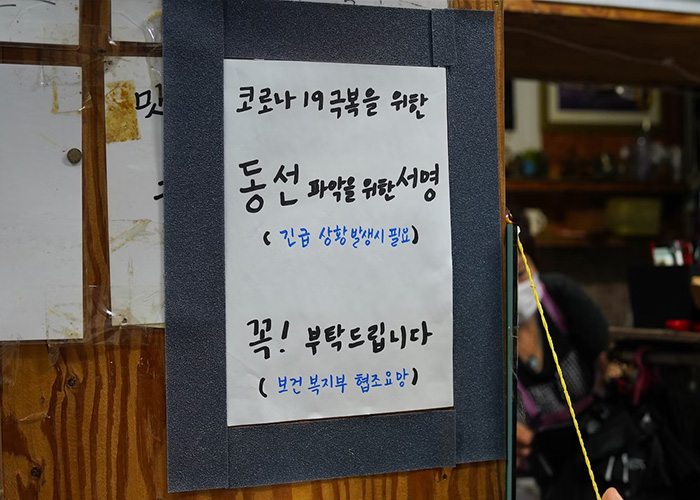 코로나 19 극복을 위한
동선 파악을 위한 서명
( 긴급 상황 발생시 필요)
꼭! 부탁드립니다
( 보건 복지부 협조요망)